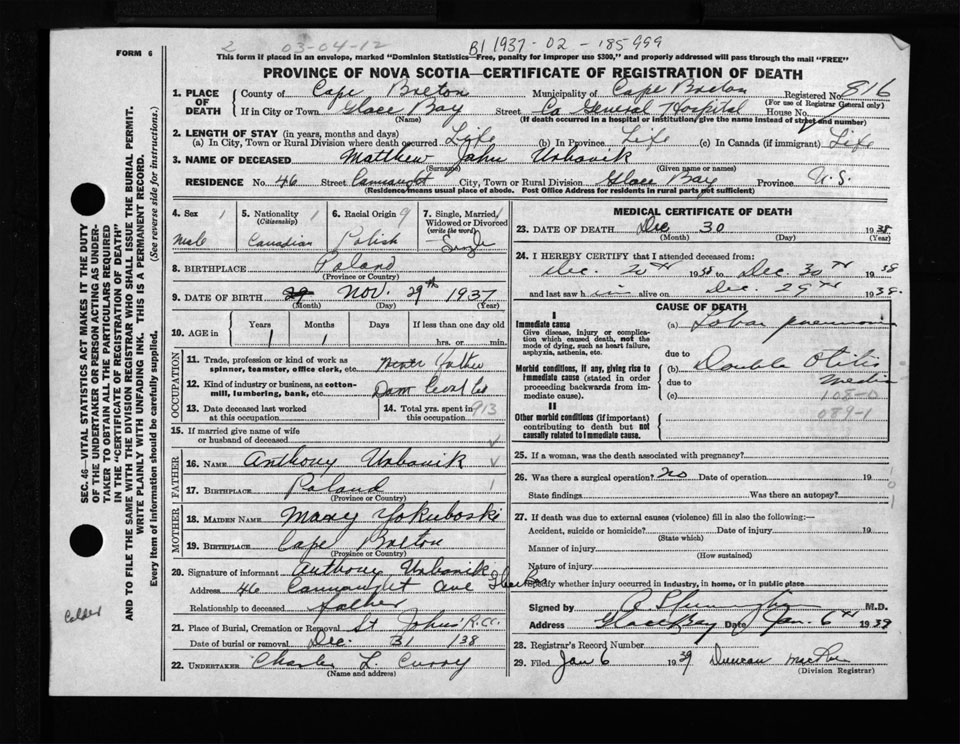 FORM 6
2 03-04-12 B1 1937-02-185999
This form if placed in an envelope, marked "Dominion Statistics—Free, penalty for improper use $300," and properly addressed will pass through the mail "FREE"
PROVINCE OF NOVA SCOTIA—CERTIFICATE OF REGISTRATION OF DEATH
1. PLACE OF DEATH
County of Cape Breton Municipality of Cape Breton Registered No. 816
(For use of Registrar General only)
If in City or Town Glace Bay Street Co General Hospital House No.
(Name) (If death occurred in a hospital or institution, give the name instead of street and number)
2. LENGTH OF STAY (in years, months and days)
(a) In City, Town or Rural Division where death occurred Life (b) In Province Life (c) In Canada (if immigrant) Life
3. NAME OF DECEASED Matthew John Urbanik
(Surname) (Given name or names)
RESIDENCE No. 46 Street Connaught City, Town or Rural Division Glace Bay Province N.S.
(Residence means usual place of abode. Post Office Address for residents in rural parts not sufficient)
4. Sex 1 5. Nationality 1 6. Racial Origin 9 7. Single, Married 1
(Citizenship) Widowed or Divorced
(write the word)
Male Canadian Polish Single
8. BIRTHPLACE Poland
(Province or Country)
9. DATE OF BIRTH Nov. 29th 1937
(Month) (Day) (Year)
10. AGE in Years Months Days If less than one day old
1 1 hrs. or min.
OCCUPATION
11. Trade, profession or kind of work as
spinner, teamster, office clerk, etc. Father
12. Kind of industry or business, as cotton-
mill, lumbering, bank, etc. Dom Coal Co
13. Date deceased last worked 14. Total yrs. spent in 913
at this occupation at this occupation
15. If married give name of wife
or husband of deceased
FATHER
16. NAME Anthony Urbanik
17. BIRTHPLACE Poland 1
(Province or Country)
MOTHER
18. MAIDEN NAME Mary Yokuboski
19. BIRTHPLACE Cape Breton
(Province or Country)
20. Signature of informant Anthony Urbanik
Address 46 Connaught Ave Glace Bay
Relationship to deceased father
21. Place of Burial, Cremation or Removal St John's R.C.
Date of burial or removal Dec. 31 1938
22. UNDERTAKER Charles L. Curry
(Name and address)
MEDICAL CERTIFICATE OF DEATH
23. DATE OF DEATH Dec 30 1938
(Month) (Day) (Year)
24. I HEREBY CERTIFY that I attended deceased from:
Dec. 20th 1938 to Dec. 30th 1938
and last saw him alive on Dec. 29th 1938.
CAUSE OF DEATH
I
Immediate cause (a) Lobar pneumonia
Give disease, injury or complica-
tion which caused death, not the
mode of dying, such as heart failure,
asphyxia, asthenia, etc. due to
Morbid conditions, if any, giving rise to (b) Double Otitis
immediate cause (stated in order due to Media
proceeding backwards from im-
mediate cause). (c) 108-0
II 089-1
Other morbid conditions (if important)
contributing to death but not
causally related to immediate cause.
25. If a woman, was the death associated with pregnancy?
26. Was there a surgical operation? No Date of operation 19
State findings Was there an autopsy?
27. If death was due to external causes (violence) fill in also the following:—
Accident, suicide or homicide? Date of injury 19
(State which)
Manner of injury
(How sustained)
Nature of injury
Specify whether injury occurred in industry, in home, or in public place
Signed by M.D.
Address Glace Bay Date Jan. 6th 1939
28. Registrar's Record Number
29. Filed Jan 6 1939 Duncan
(Division Registrar)
SEC. 46—VITAL STATISTICS ACT MAKES IT THE DUTY
OF THE UNDERTAKER OR PERSON ACTING AS UNDER-
TAKER TO OBTAIN ALL THE PARTICULARS REQUIRED
IN THE "CERTIFICATE OF REGISTRATION OF DEATH"
AND TO FILE THE SAME WITH THE DIVISION REGISTRAR WHO SHALL ISSUE THE BURIAL PERMIT.
WRITE PLAINLY WITH UNFADING INK. THIS IS A PERMANENT RECORD.
Every item of information should be carefully supplied. (See reverse side for instructions.)
Calder